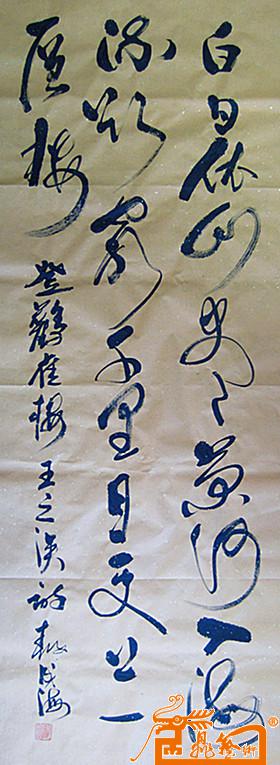 白日依山尽黄河入海
流欲窮千里目更上一
层楼
登鸛雀楼 王之涣诗 海
鼎藝術